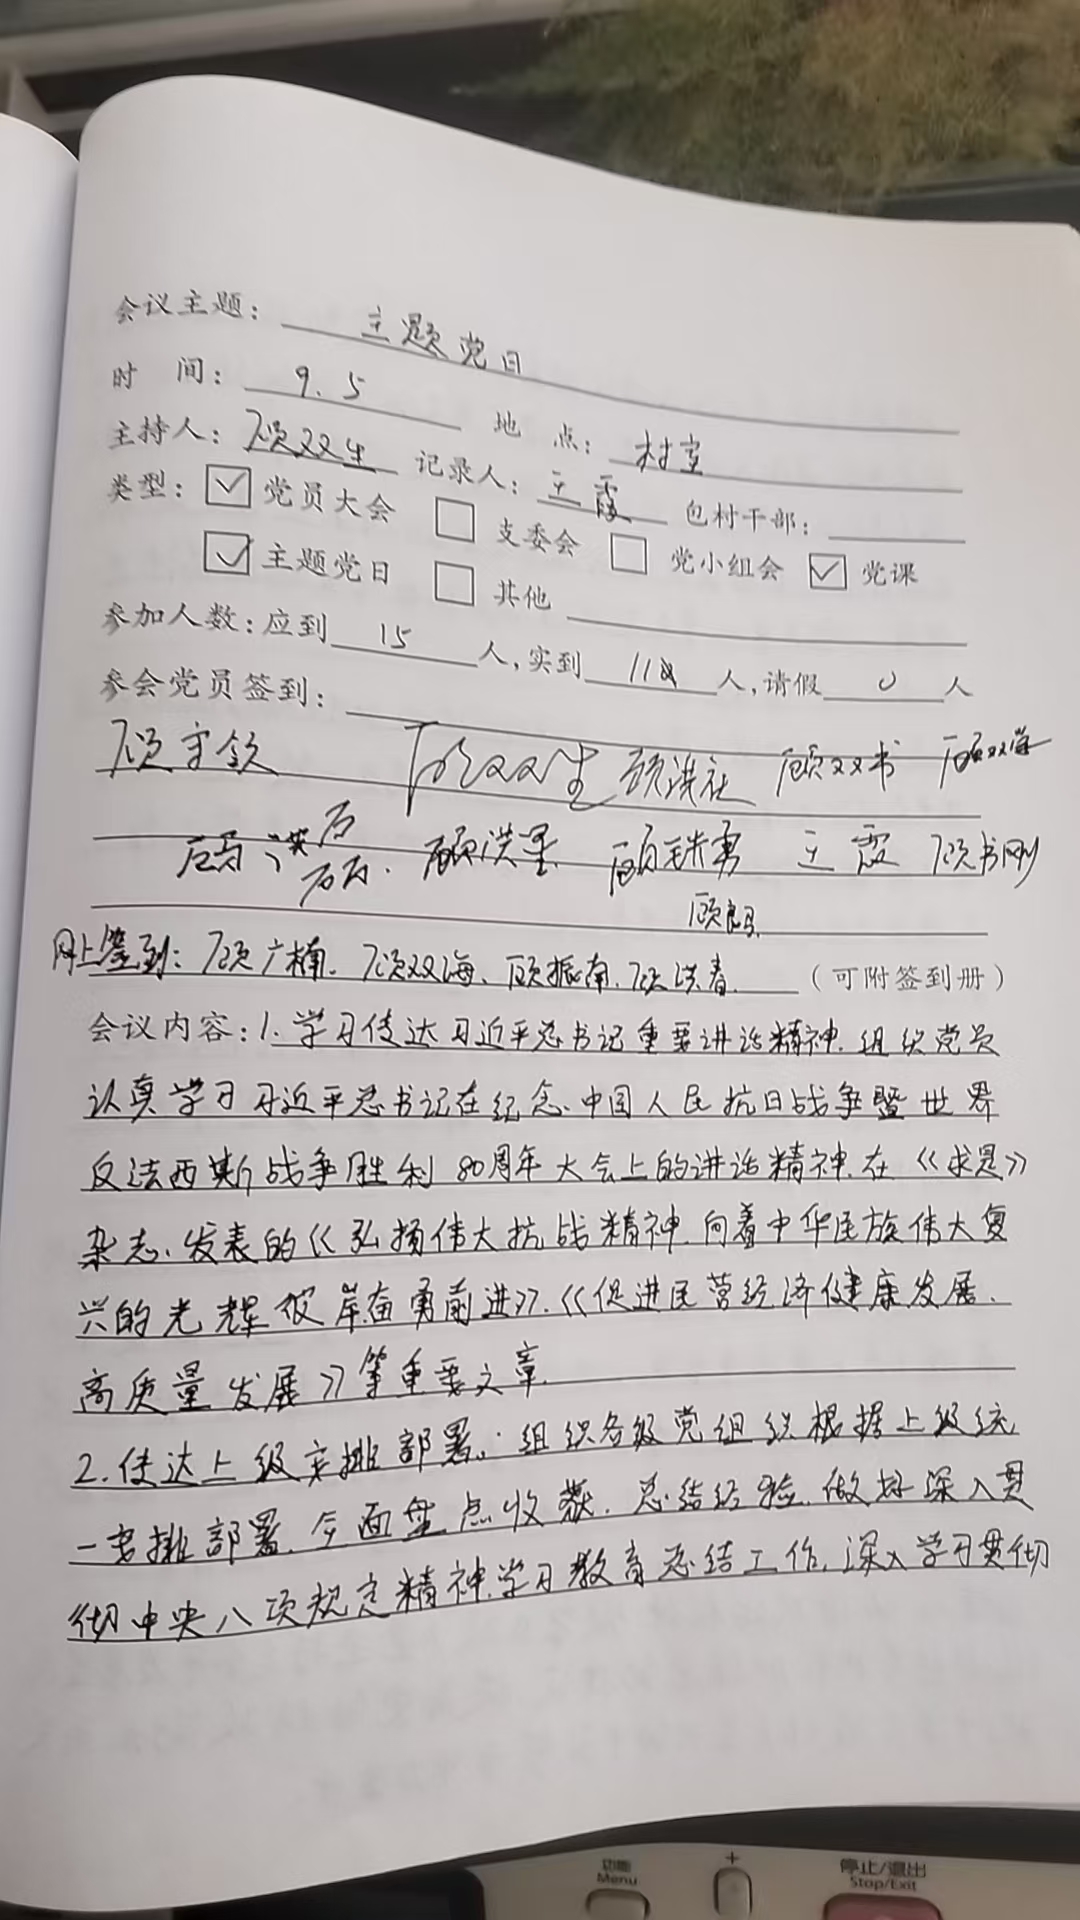 会议主题：主题党日
时 间：9.5 地 点：村室
主持人：顾双生 记录人：王霞 包村干部：
类型：☑党员大会 □支委会 □党小组会 ☑党课
☑主题党日 □其他
参加人数：应到15人，实到11人，请假0人
参会党员签到：
顾守钦 顾双生 顾洪社 顾双书
顾洪 顾洪星 王霞 顾书刚
顾
网上签到：顾广楠、顾双海、顾振南、顾洪春.（可附签到册）
会议内容：1.学习传达习近平总书记重要讲话精神.组织党员
认真学习习近平总书记在纪念中国人民抗日战争暨世界
反法西斯战争胜利80周年大会上的讲话精神.在《求是》
杂志、发表的《弘扬伟大抗战精神.向着中华民族伟大复
兴的光辉彼岸奋勇前进》.《促进民营经济健康发展、
高质量发展》等重要文章.
2.传达上级安排部署。组织各级党组织根据上级统
一安排部署.全面盘点收获.总结经验.做好深入贯
彻中央八项规定精神学习教育总结工作.深入学习贯彻
功能
Menu
+
停止/退出
Stop/Exit